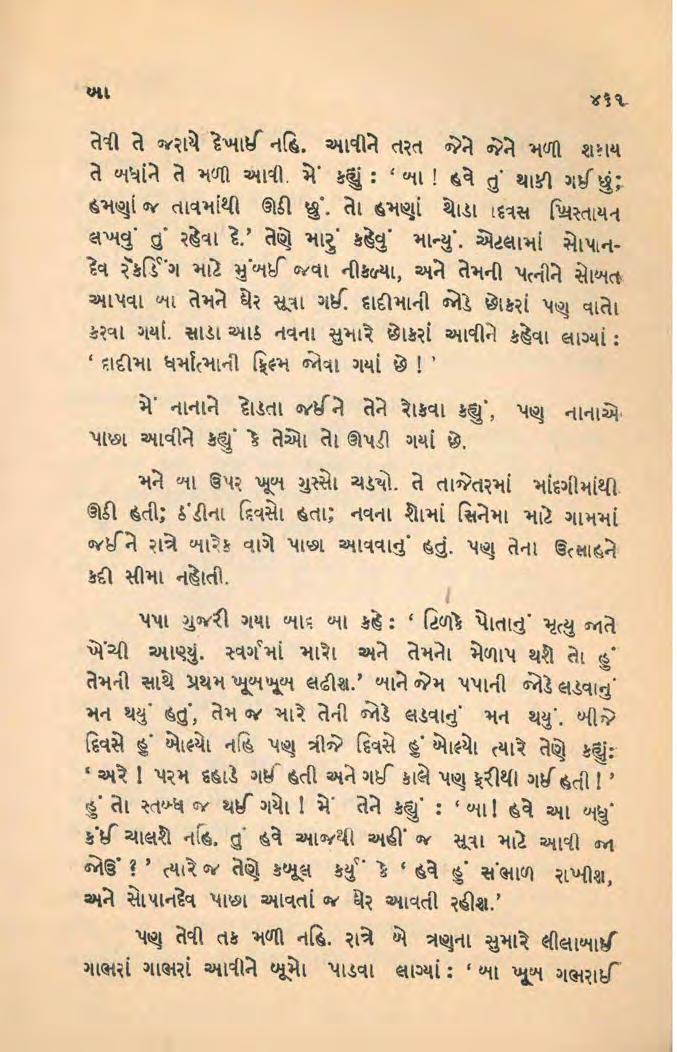 બા
૪૬૧
તેવી તે જરાયે દેખાઈ નહિ. આવીને તરત જેને જેને મળી શકાય
તે બધાંને તે મળી આવી. મેં કહ્યું : ‘ બા ! હવે તું થાકી ગઈ છું;
હમણાં જ તાવમાંથી ઊઠી છું. તો હમણાં થોડા દિવસ ખ્રિસ્તાયન
લખવું તું રહેવા દે.’ તેણે મારું કહેવું માન્યું. એટલામાં સોપાન-
દેવ રૅકર્ડિંગ માટે મુંબઈ જવા નીકળ્યા, અને તેમની પત્નીને સોબત
આપવા બા તેમને ઘેર સૂવા ગઈ. દાદીમાની જોડે છોકરાં પણ વાતો
કરવા ગયાં. સાડા આઠ નવના સુમારે છોકરાં આવીને કહેવા લાગ્યાં :
‘ દાદીમા ધર્માત્માની ફિલ્મ જોવા ગયાં છે ! ’
મેં નાનાને દોડતા જઈને તેને રોકવા કહ્યું, પણ નાનાએ
પાછા આવીને કહ્યું કે તેઓ તો ઊપડી ગયાં છે.
મને બા ઉપર ખૂબ ગુસ્સો ચડયો. તે તાજેતરમાં માંદગીમાંથી
ઊઠી હતી; ઠંડીના દિવસો હતા; નવના શોમાં સિનેમા માટે ગામમાં
જઈને રાત્રે બારેક વાગે પાછા આવવાનું હતું. પણ તેના ઉત્સાહને
કદી સીમા નહોતી.
પપા ગુજરી ગયા બાદ બા કહે : ‘ ટિળકે પોતાનું મૃત્યુ જાતે
ખેંચી આણ્યું. સ્વર્ગમાં મારો અને તેમનો મેળાપ થશે તો હું
તેમની સાથે પ્રથમ ખૂબખૂબ લઢીશ.’ બાને જેમ પપાની જોડે લડવાનું
મન થયું હતું, તેમ જ મારે તેની જોડે લડવાનું મન થયું. બીજે
દિવસે હું બોલ્યો નહિ પણ ત્રીજે દિવસે હું બોલ્યો ત્યારે તેણે કહ્યું:
‘ અરે ! પરમ દહાડે ગઈ હતી અને ગઈ કાલે પણ ફરીથી ગઈ હતી ! ’
હું તો સ્તબ્ધ જ થઈ ગયો ! મેં તેને કહ્યું : ‘બા! હવે આ બધું
કંઈ ચાલશે નહિ. તું હવે આજથી અહીં જ સૂવા માટે આવી જા
જોઉં ? ’ ત્યારે જ તેણે કબૂલ કર્યું કે ‘ હવે હું સંભાળ રાખીશ,
અને સોપાનદેવ પાછા આવતાં જ ઘેર આવતી રહીશ.’
પણ તેવી તક મળી નહિ. રાત્રે બે ત્રણના સુમારે લીલાબાઈ
ગાભરાં ગાભરાં આવીને બૂમો પાડવા લાગ્યાં : ‘ બા ખૂબ ગભરાઈ